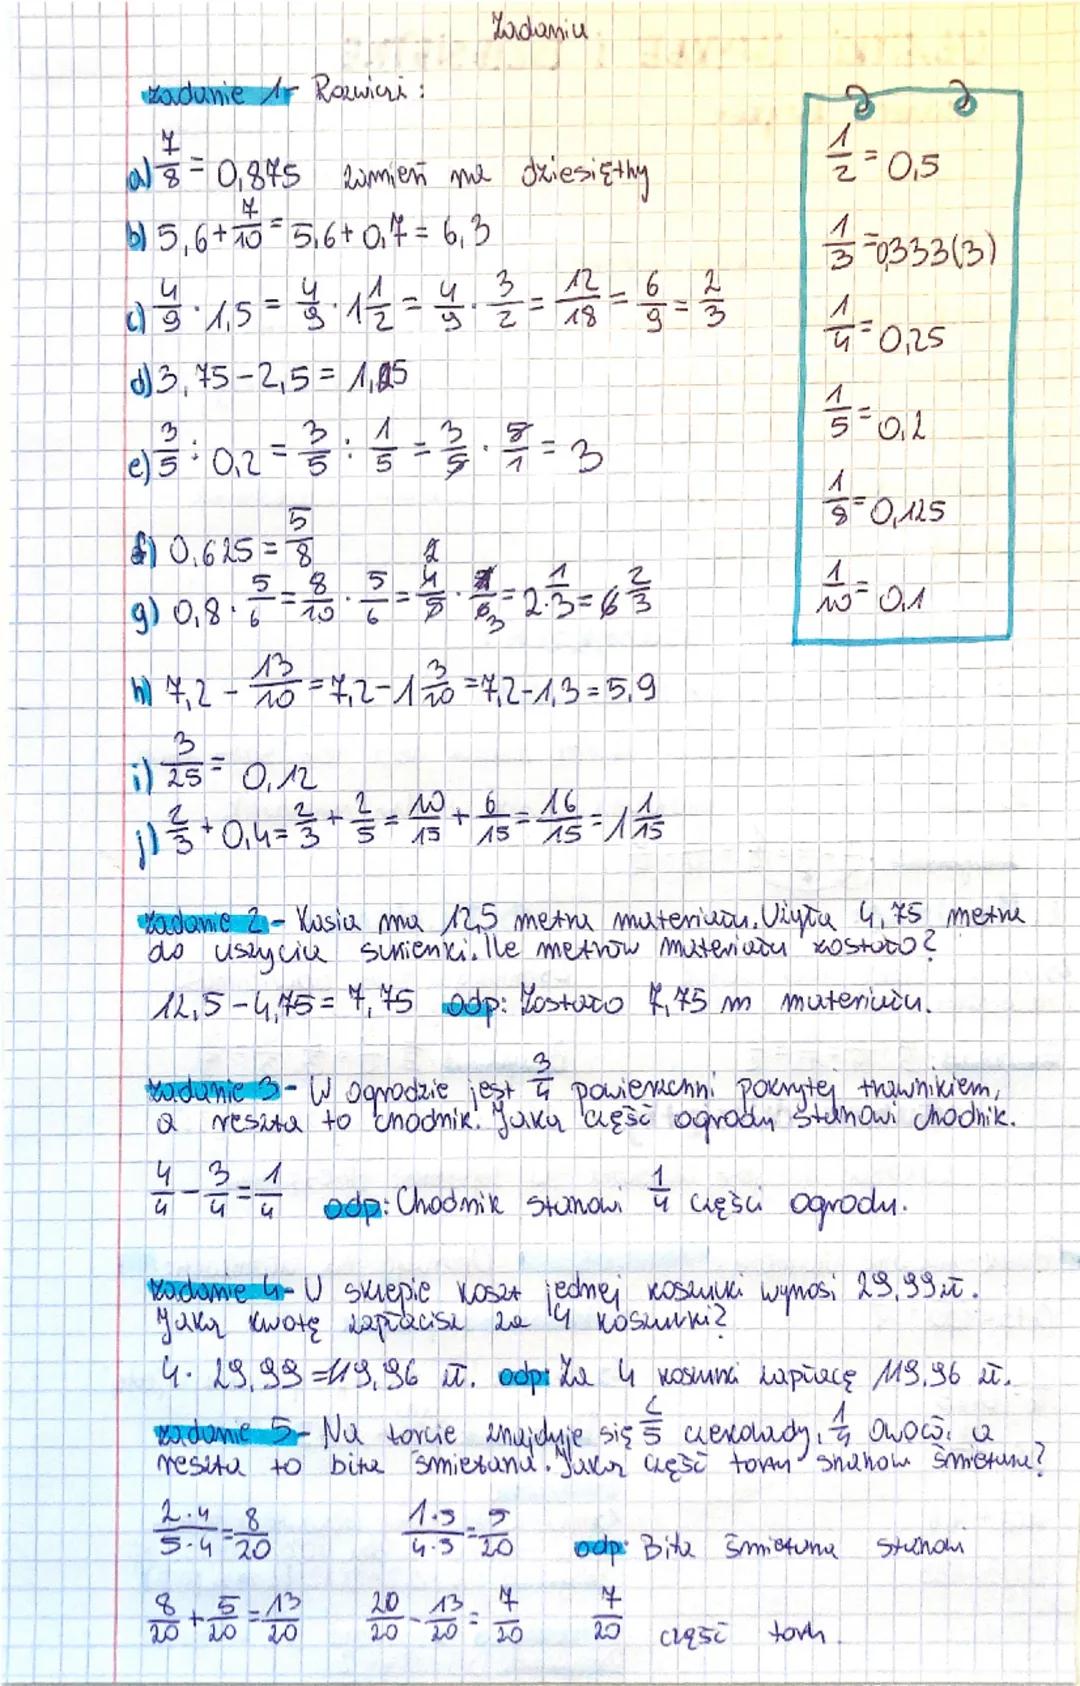 Zadania
zadanie 1- Rozwiąż:
a) 7/8 = 0,875 zamień na dziesiętny
b) 5,6 + 7/10 = 5,6 + 0,7 = 6,3
c) 4/9 · 1,5 = 4/9 · 1 1/2 = 4/9 · 3/2 = 12/18 = 6/9 = 2/3
d) 3,75 - 2,5 = 1,25
e) 3/5 : 0,2 = 3/5 : 1/5 = 3/5 · 5/1 = 3
f) 0,625 = 5/8
g) 0,8 · 5/6 = 8/10 · 5/6 = 4/5 · 6 3 = 2 · 1/3 = 6 2/3
h) 7,2 - 13/10 = 7,2 - 1 3/10 = 7,2 - 1,3 = 5,9
i) 3/25 = 0,12
j) 2/3 + 0,4 = 2/3 + 2/5 = 10/15 + 6/15 = 16/15 = 1 1/15
1/2 = 0,5
1/3 = 0,333(3)
1/4 = 0,25
1/5 = 0,2
1/8 = 0,125
1/10 = 0,1
zadanie 2 - Kasia ma 12,5 metra materiału. Użyła 4,75 metra
do uszycia sukienki. Ile metrów materiału zostało?
12,5 - 4,75 = 7,75 odp: Zostało 7,75 m materiału.
zadanie 3 - W ogrodzie jest 3/4 powierzchni pokrytej trawnikiem,
a reszta to chodnik. Jaką część ogrodu stanowi chodnik.
4/4 - 3/4 = 1/4 odp: Chodnik stanowi 1/4 części ogrodu.
zadanie 4 - W sklepie koszt jednej koszulki wynosi 29,99 zł.
Jaką kwotę zapłacisz za 4 koszulki?
4 · 29,99 = 119,96 zł. odp: Za 4 koszulki zapłacę 119,96 zł.
zadanie 5 - Na torcie znajduje się 2/5 czekolady, 1/4 owoców, a
reszta to bita śmietana. Jaką część tortu stanowi śmietana?
2·4/5·4 = 8/20 1·5/4·5 = 5/20 odp: Bita śmietana stanowi
8/20 + 5/20 = 13/20 20/20 - 13/20 = 7/20 7/20 część tortu.